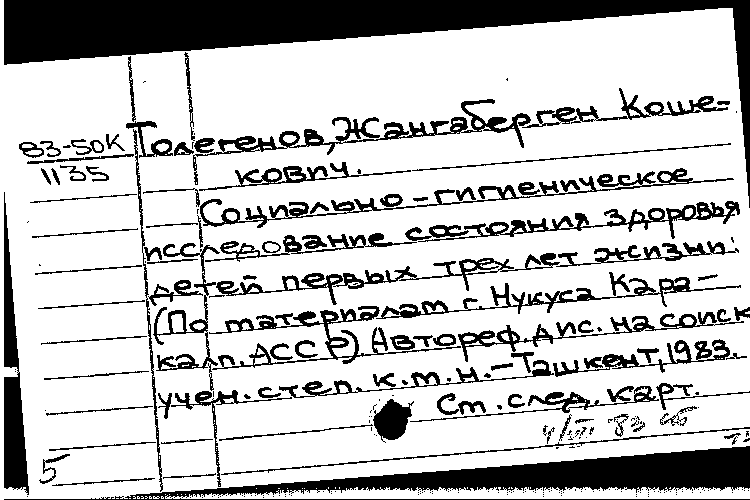 83-50К
1135
Толегенов, Жангаберген Коше-
кович.
Социально-гигиеническое
исследование состояния здоровья
детей первых трех лет жизни:
(По материалам г. Нукуса Кара-
калп. АССР). Автореф. дис. на соиск
учен. степ. к.м.н. - Ташкент, 1983.
См. след. карт.
4/VIII 83
5